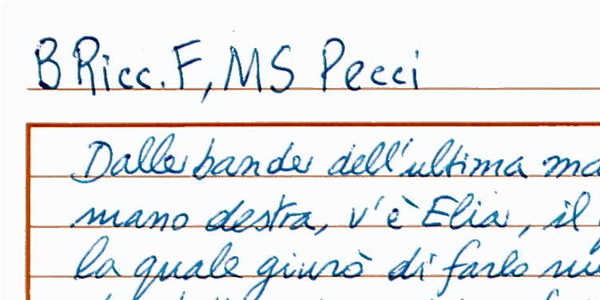 B Ricc. F, MS Pecci
Dalle bande dell'ultima
mano destra, v'è Elia, il
la quale giurò di farlo